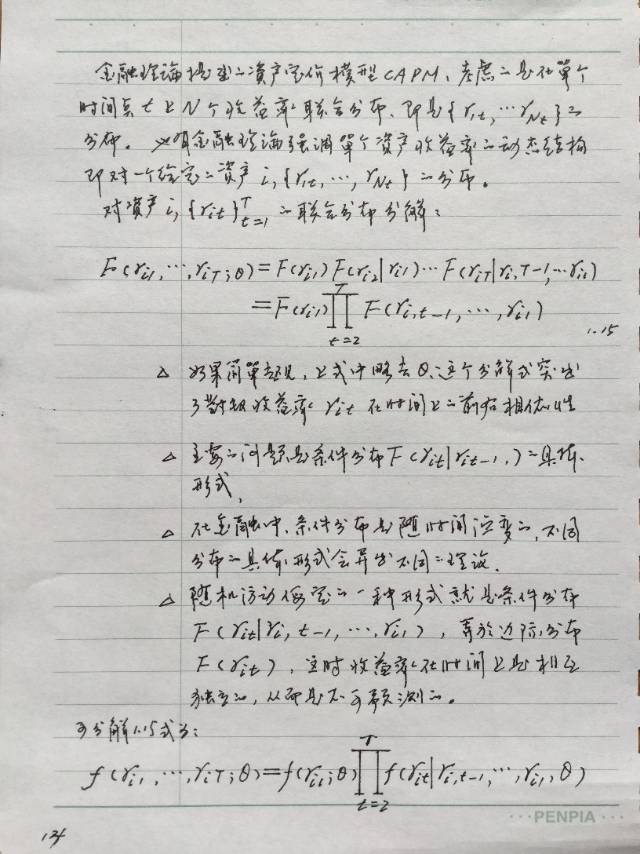 金融理論提到的資产定价模型CAPM、考虑的是在單个
时间点t上N个收益率的联合分布、即是{r1t,…rNt}的
分布。 金融理論强调單个資产收益率的动态结构
即对一个给定的資产i,{r1t,…,rNt}的分布。
对資产i,{rit}ᵀt=1的联合分布分解:
F(ri1,…,riT;θ)=F(ri1)F(ri2|ri1)…F(riT|ri,T-1,…ri1)
=F(ri1)∏ᵀt=2 F(ri,t-1,…,ri1)
1.15
△ 如果简單起见,上式中略去θ、这个分解式突出
了对数收益率rit在时间上的前后相依性
△ 主要的问题是条件分布F(rit|rit-1,)的具体
形式,
△ 在金融中、条件分布是随时间演变的,不同
分布的具体形式会导出不同的理论.
△ 随机游动假定的一种形式就是条件分布
F(rit|ri,t-1,…,ri1),等於边际分布
F(rit),这时收益率在时间上是相互
独立的,从而是不可预测的。
可分解1.15式为:
f(ri1,…,riT;θ)=f(ri1;θ)∏ᵀt=2 f(rit|ri,t-1,…,ri1,θ)
PENPIA